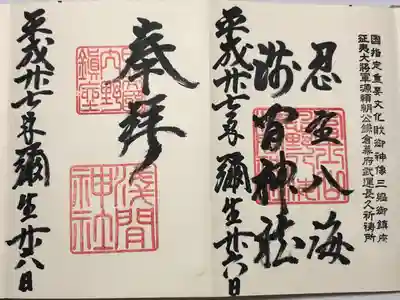 國指定重要文化財御神像三姫御鎮座
征夷大将軍源頼朝公鎌倉幕府武運長久祈祷所
忍埜八海
淺間神社
平成廿七年彌生廿六日
奉拜
淺間神社
平成廿七年彌生廿六日